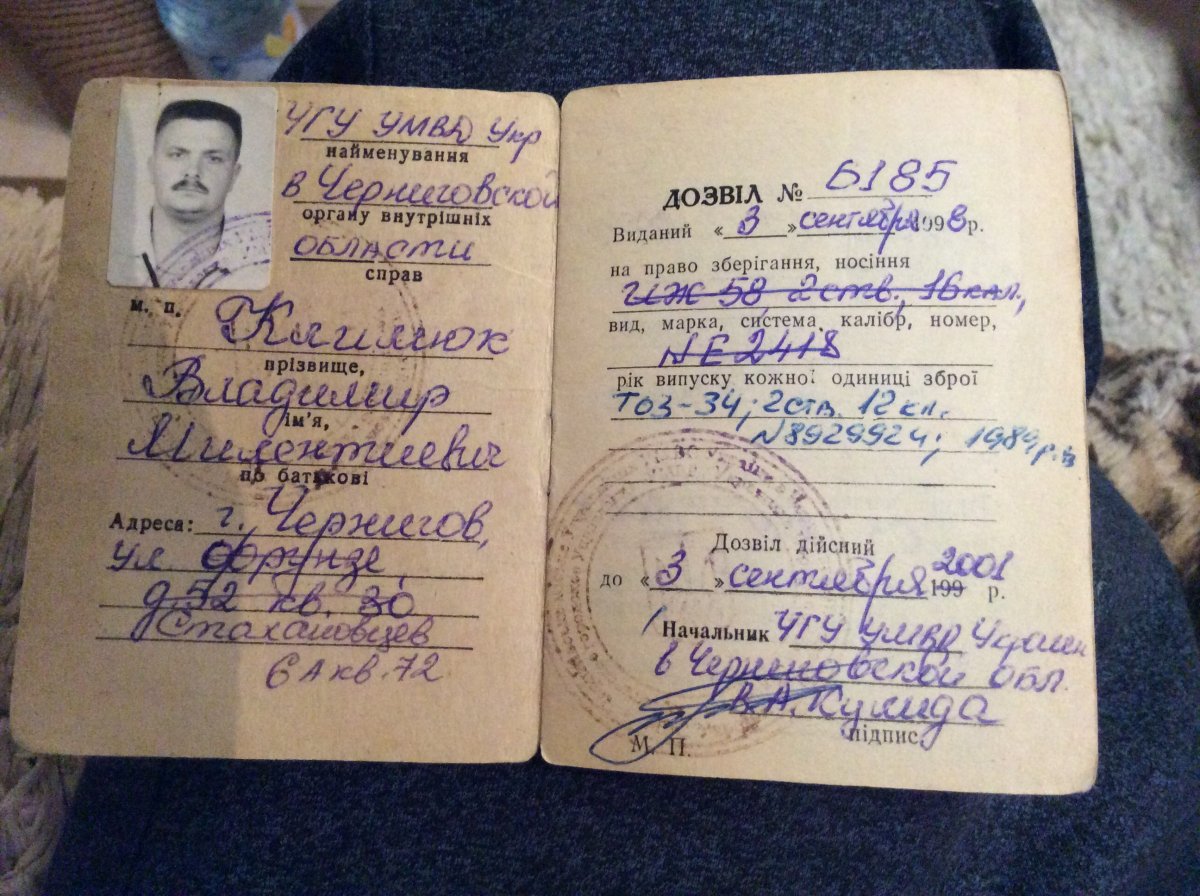 УГУ УМВД Укр
найменування
в Черниговской
органу внутрішніх
области
справ
м. п.
Климюк
прізвище,
Владимир
ім'я,
Милентиевич
по батькові
Адреса: г. Чернигов,
ул. Фрунзе,
д. 52 кв. 30
Стахановцев
6А кв. 72
ДОЗВІЛ № 6185
Виданий « 3 » сентября 1998 р.
на право зберігання, носіння
ИЖ 58, 2 ств., 16 кал.,
вид, марка, система, калібр, номер,
№ Е 2418
рік випуску кожної одиниці зброї
ТОЗ-34; 2 ств. 12 кл.
№8929924; 1989 р.в
Дозвіл дійсний
до « 3 » сентября 199 2001 р.
Начальник УГУ УМВД Украины
в Черниговской обл.
В.А. Кулида
підпис
М. П.